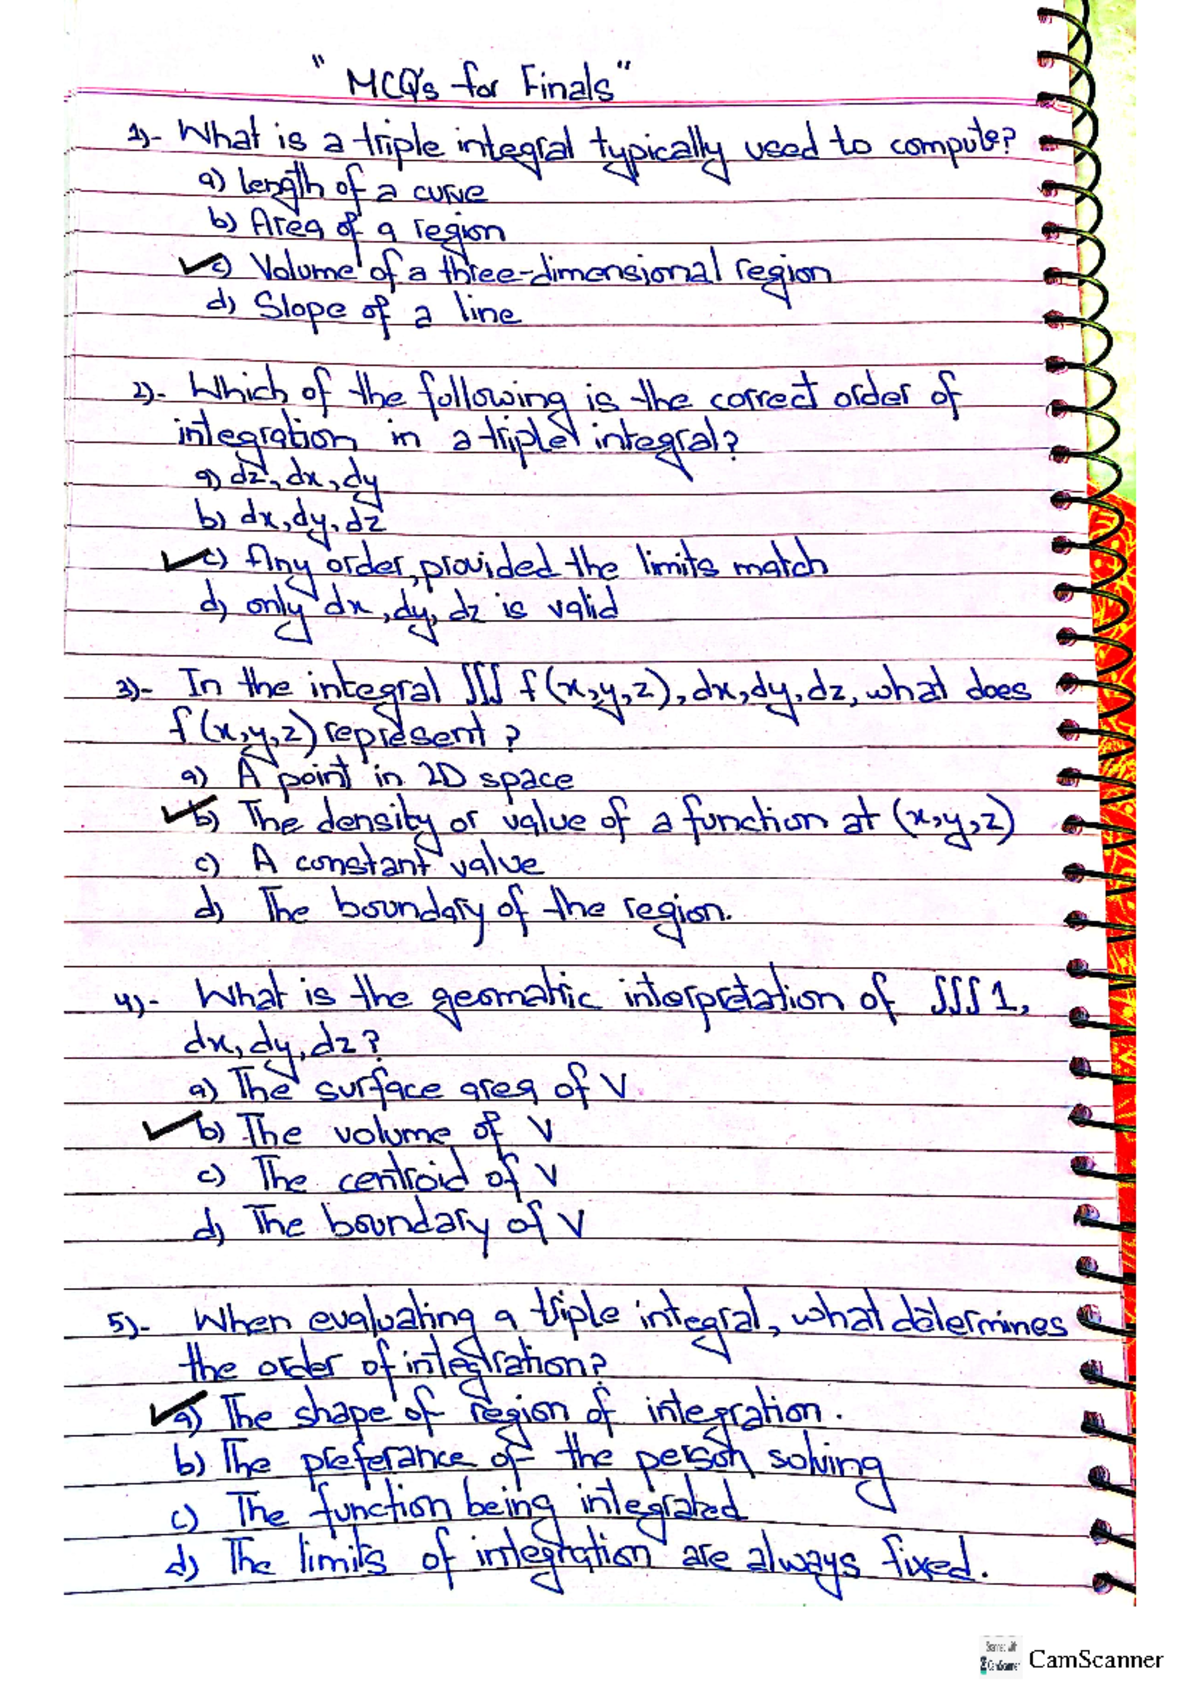 "MCQ's for Finals"
1)- What is a triple integral typically used to compute?
a) length of a curve
b) Area of a region
c) Volume of a three-dimensional region
d) Slope of a line
2)- Which of the following is the correct order of
integration in a triple integral?
a) dz, dx, dy
b) dx, dy, dz
c) Any order, provided the limits match
d) only dx, dy, dz is valid
3)- In the integral ∭ f(x,y,z), dx, dy, dz, what does
f(x,y,z) represent?
a) A point in 2D space
b) The density or value of a function at (x,y,z)
c) A constant value
d) The boundary of the region.
4)- What is the geomatric interpretation of ∭ 1,
dx, dy, dz?
a) The surface area of V
b) The volume of V
c) The centroid of V
d) The boundary of V
5)- When evaluating a triple integral, what determines
the order of integration?
a) The shape of region of integration.
b) The preferance of the person solving
c) The function being integrated
d) The limits of integration are always fixed.
Scanned with
CamScanner CamScanner